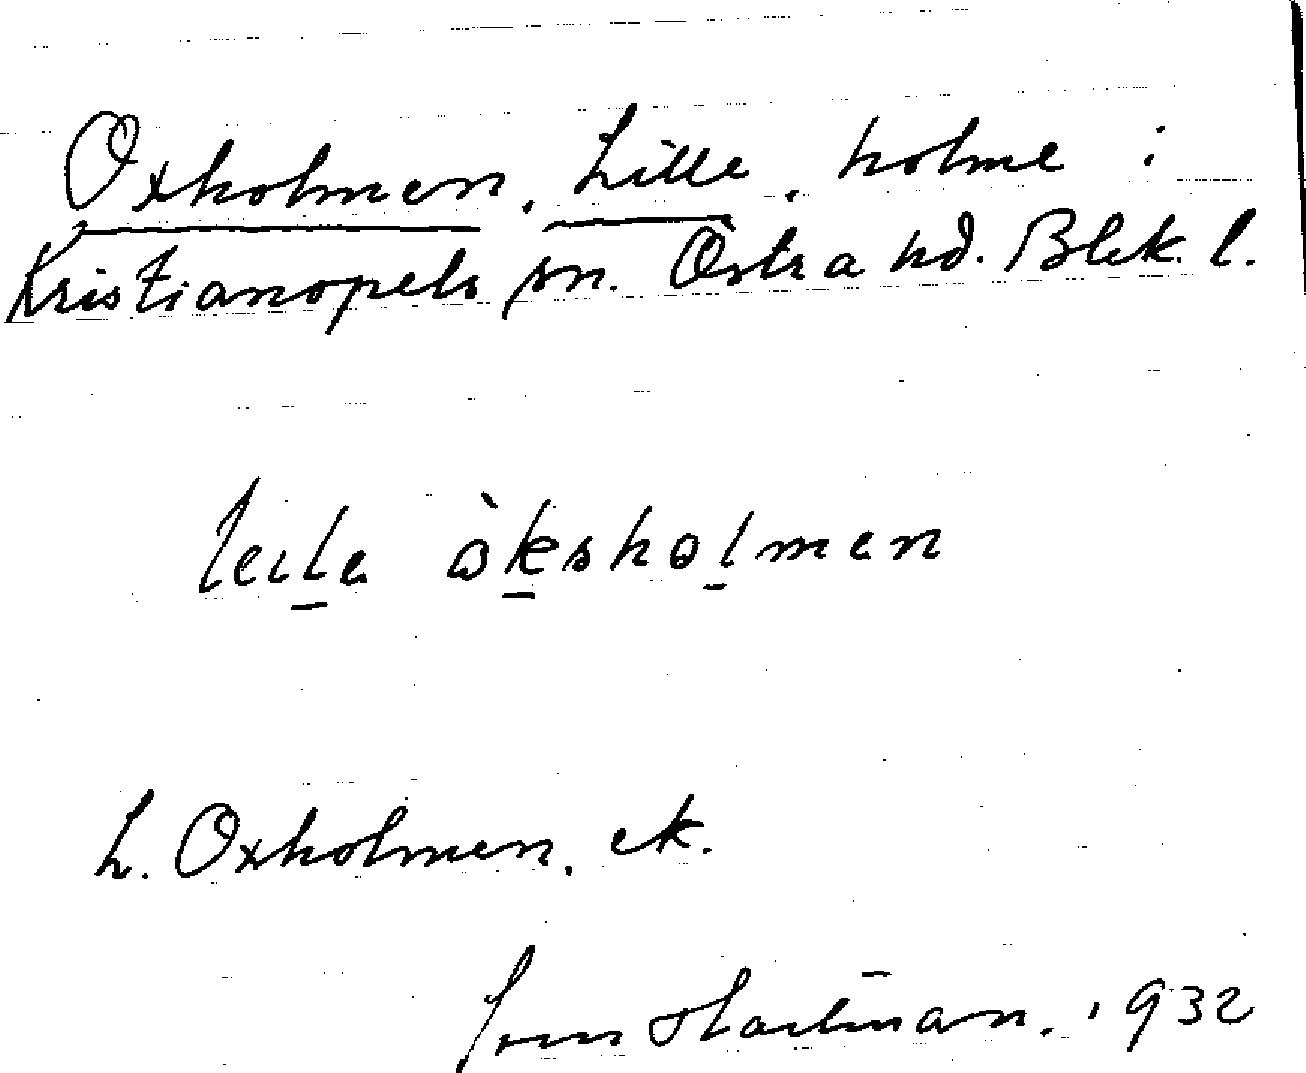 Oxholmen, Lille, holme i
Kristianopels sn. Östra hd. Blek. l.
leila òksholmen
L. Oxholmen. ek.
Hartman. 1932